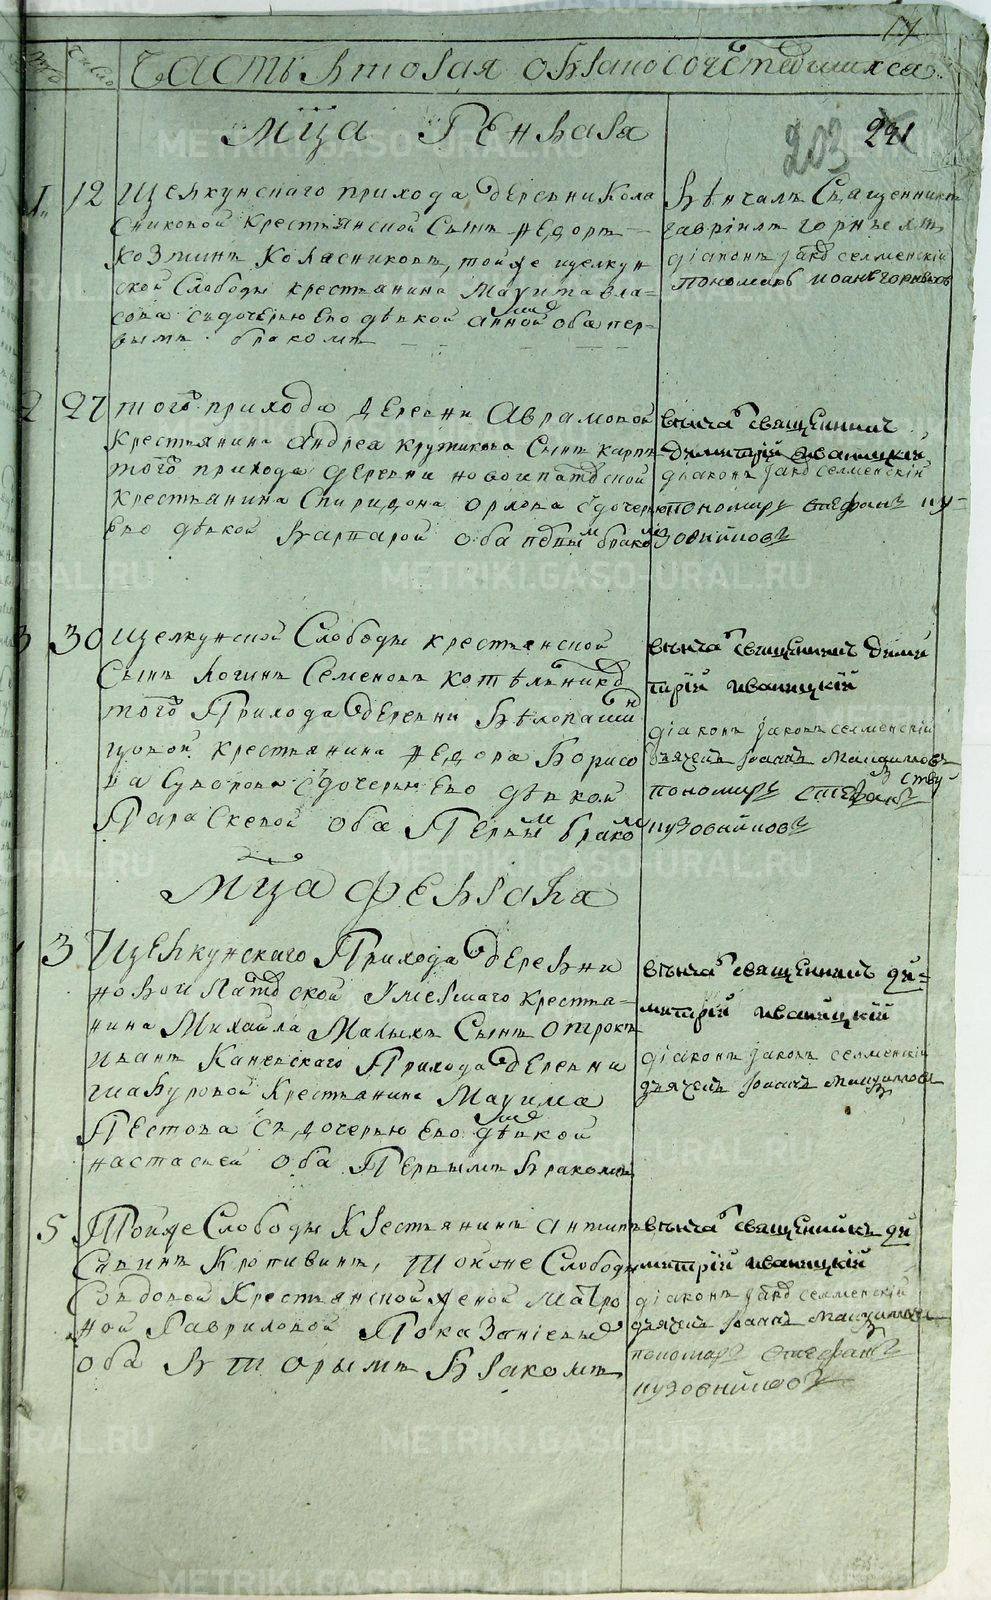 Часть вторая о бракосочетавшихся
203 221
Мца Генваря
1 12 Щелкунскаго прихода деревни Кола
сниковой крестьянской Сынъ Федоръ
Козминъ Коласниковъ, тойже щелкун
ской Слободы крестьянина Маѯима вла-
сова съ дочерью ево девкой Анной оба пер-
вымъ бракомъ
Венчалъ Священникъ
Гавріилъ
діаконъ Яковъ селменскій
пономарь Иоаннъ
2 27 того прихода деревни Аврамовой
Крестьянина Андрея Крутикова Сынъ Карпъ
того прихода деревни новоипатовской
крестьянина Спиридона Орлова с дочерью
Ево девкой Варварой оба первым браком
венча священникъ
Димитрій Иваницкій
діаконъ Яковъ селменскій
пономарь Стефанъ пу-
зовниковъ
3 30 Щелкунской Слободы крестьянской
Сынъ Логинъ Семеновъ Котельников
того Прихода деревни
крестьянина Федора Борисо
ва Суворова с дочерью Ево девкой
Параскевой оба Первым браком
венча священникъ Дими
трій Иваницкій
діаконъ Яковъ селменскій
дьячекъ Іоаннъ
пономарь Стефанъ
пузовниковъ
Мца Февраля
3 Щелкунскаго Прихода деревни
новоипатовской Умершаго крестья-
нина Михаила Малыхъ Сынъ отрокъ
Иванъ Каневскаго Прихода деревни
шабуровой Крестьянина Маѯима
Пестова съ дочерью Ево девкой
настасьей оба Первымъ бракомъ
венча священникъ Ди-
митрій Иваницкій
діаконъ Яковъ селменскій
дьячекъ Іоаннъ
5 Тойже Слободы Крестьянинъ Антипъ
Савинъ Кропивинъ, тоя же Слободы
вдовой Крестьянской женой Матро
ной Гавриловой
оба вторымъ бракомъ
венча священникъ Ди
митрій Иваницкій
діаконъ Яковъ селменскій
дьячекъ Іоаннъ
пономарь Стефанъ
пузовниковъ
METRIKI.GASO-URAL.RU